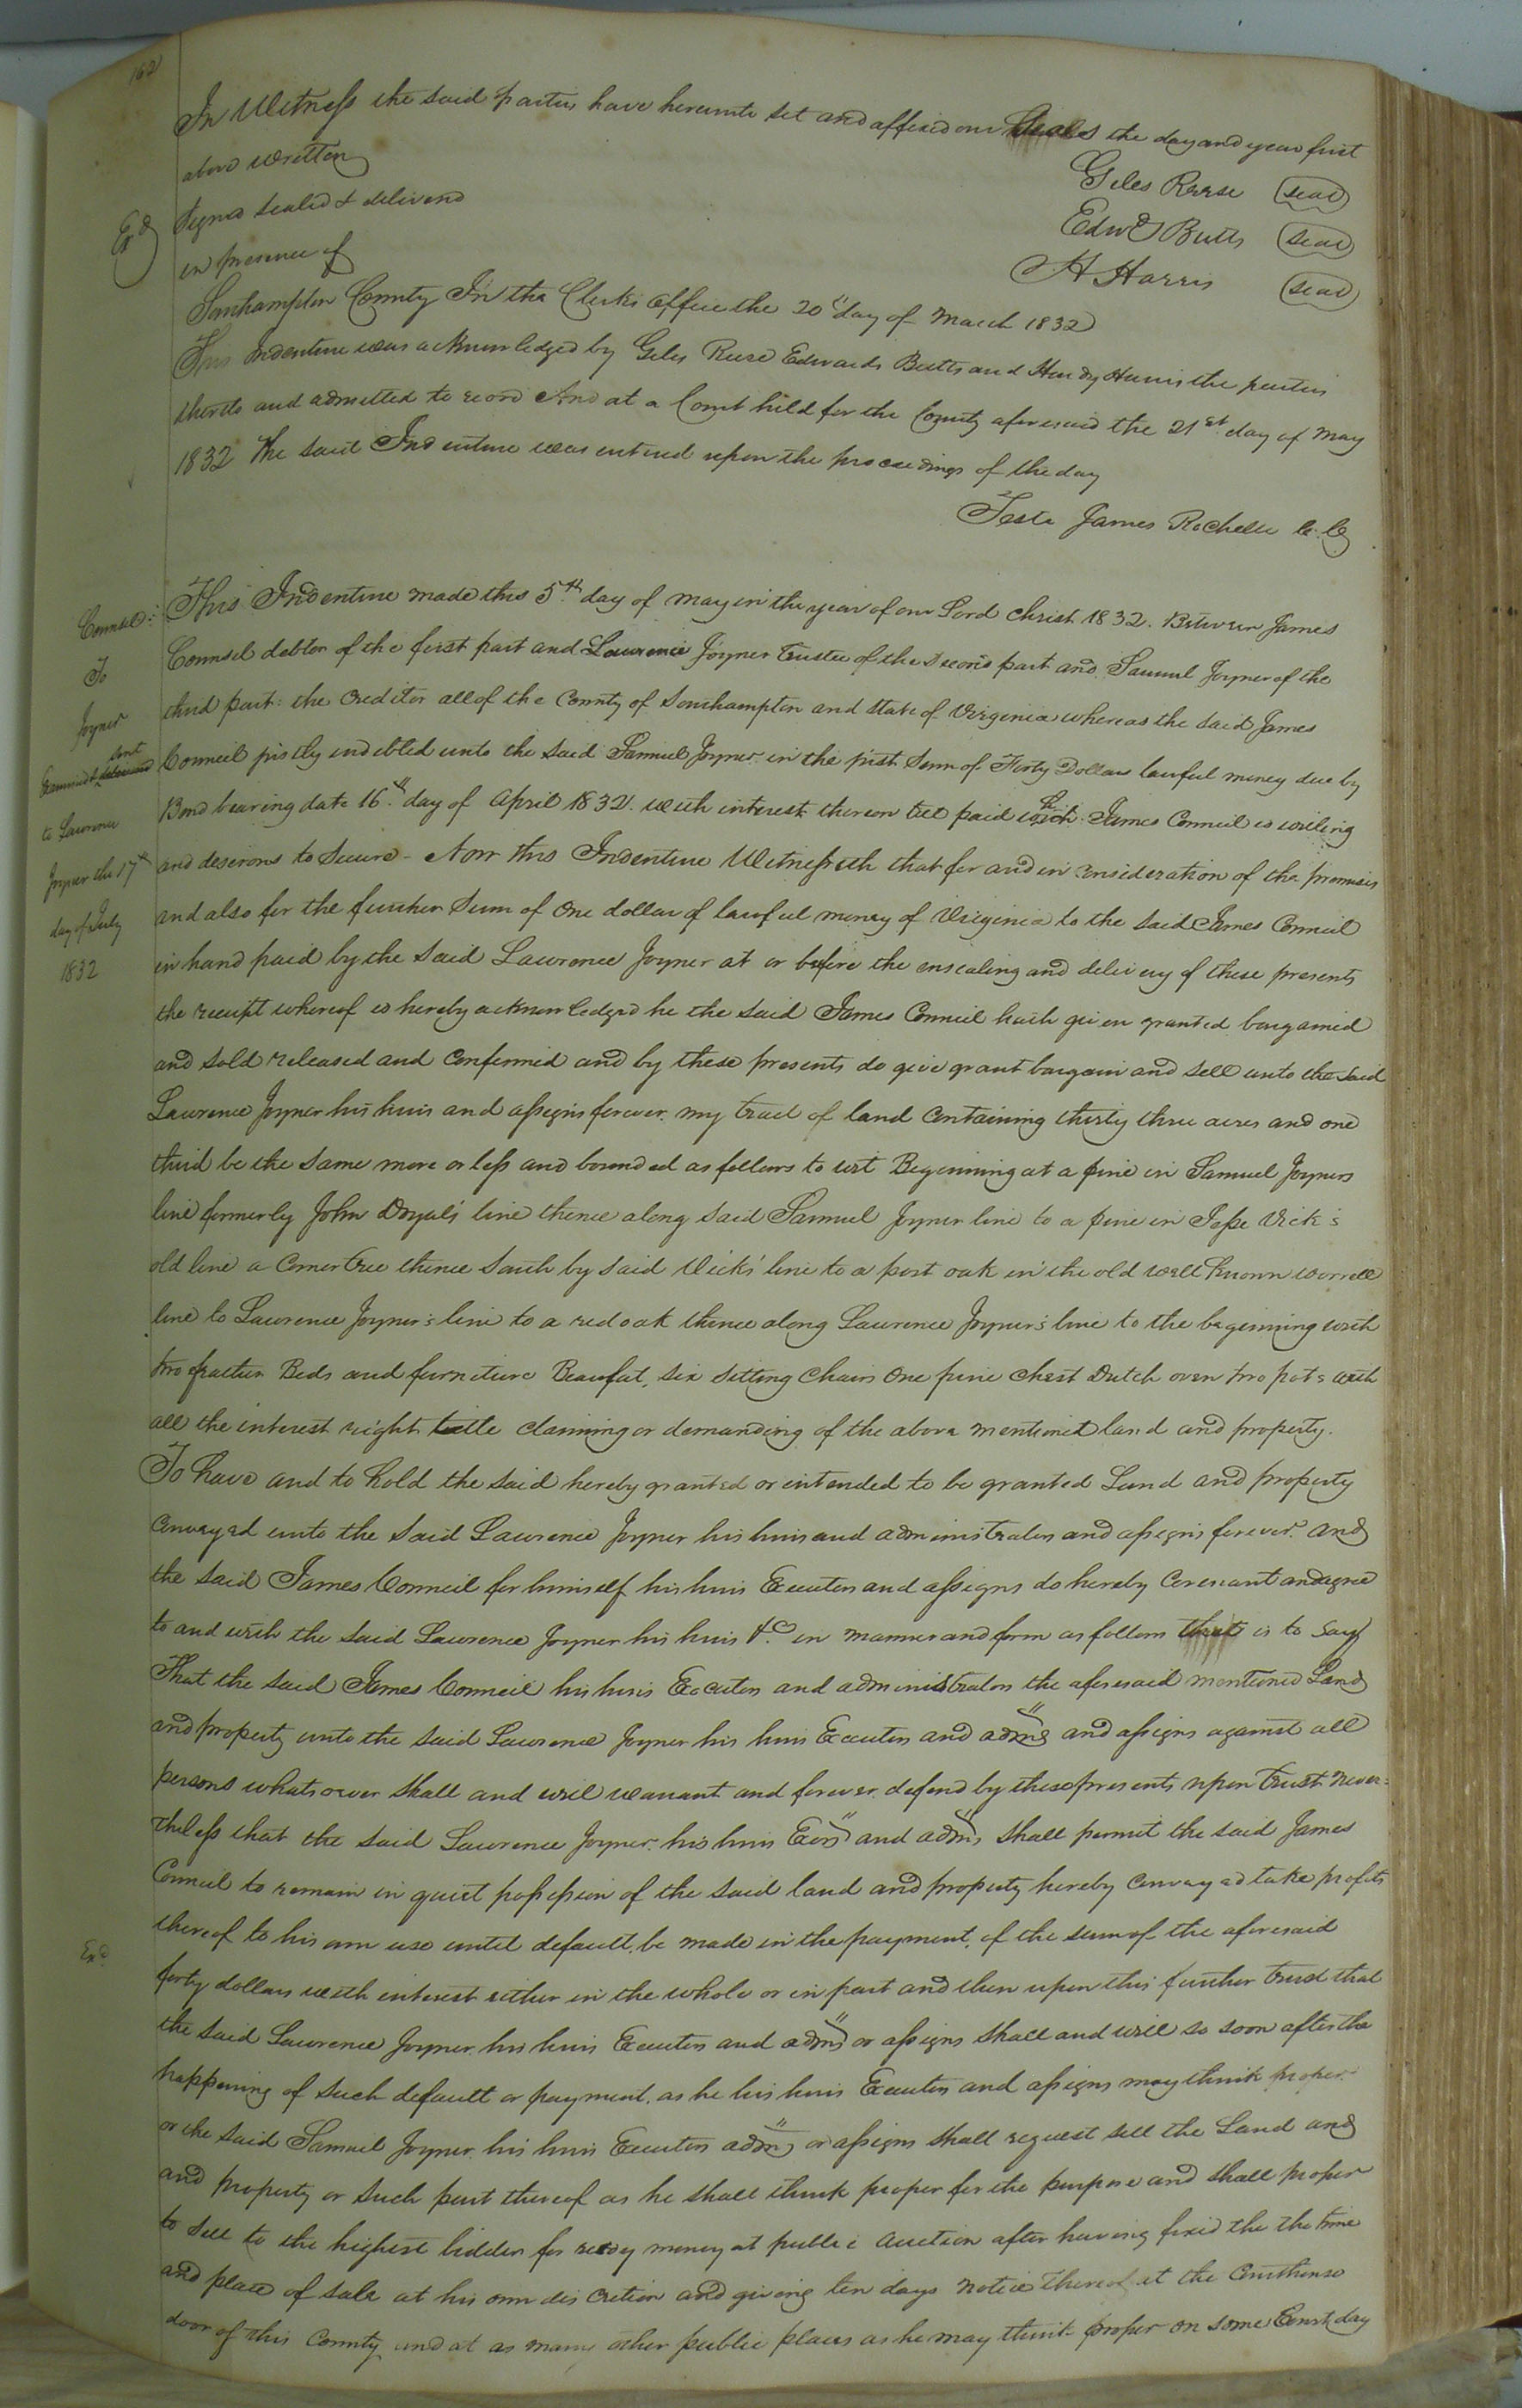 162
In Witness the said parties have hereunto set and affixed our Seals the day and year first
above written
Giles Reese (seal)
Signed sealed & delivered
Edwd Butts (seal)
Exd
in presence of
H Harris (seal)
Southampton County In the Clerks Office the 20th day of March 1832
This Indenture was acknowledged by Giles Reese Edwards Butts and Hardy Harris the parties
thereto and admitted to record And at a Court held for the County aforesaid the 21st day of May
1832 The said Indenture was entered upon the proceedings of the day
Teste James Rochelle C. C
Council:
To
Joyner
Examined & delivered
sent
to Lawrence
Joyner the 17th
day of July
1832
This Indenture made this 5th day of may in the year of our Lord Christ 1832. Between James
Council debtor of the first part and Lawrence Joyner Trustee of the Second part and Samuel Joyner of the
third part: the Creditor all of the County of Southampton and state of Virginia whereas the said James
Council justly indebted unto the said Samuel Joyner in the just Sum of Forty Dollars lawful money due by
Bond bearing date 16th day of April 1832. with interest thereon till paid which James Council is willing
and desirous to Secure - Now this Indenture Witnesseth that for and in consideration of the premises
and also for the further Sum of One dollar of lawful money of Virginia to the said James Council
in hand paid by the said Lawrence Joyner at or before the ensealing and delivery of these presents
the receipt whereof is hereby acknowledged he the said James Council hath given granted bargained
and sold released and confirmed and by these presents do give grant bargain and sell unto the said
Lawrence Joyner his heirs and assigns forever. my tract of land containing thirty three acres and one
third be the same more or less and bounded as follows to wit Beginning at a pine in Samuel Joyners
line formerly John Doyals line thence along said Samuel Joyner line to a pine in Jesse Vick's
old line a Corner tree thence South by said Vicks' line to a post oak in the old well known worrell
line to Lawrence Joyner's line to a red oak thence along Lawrence Joyner's line to the beginning with
two feather Beds and furniture Beaufat, six sitting Chairs One pine chest Dutch oven two pots with
all the interest right title claiming or demanding of the above mentioned land and property.
To have and to hold the said hereby granted or intended to be granted Land and property
Conveyed unto the said Lawrence Joyner his heirs and administrators and assigns forever. and
the said James Council for himself his heirs Executors and assigns do hereby Covenant and agree
to and with the said Lawrence Joyner his heirs &c. in manner and form as follows that is to say
That the said James Council his heirs Executors and administrators the aforesaid mentioned Land
and property unto the said Lawrence Joyner his heirs Executors and adms and assigns against all
persons whatsoever shall and will warrant and forever defend by these presents upon Trust never-
theless that the said Lawrence Joyner his heirs Exors and adms shall permit the said James
Council to remain in quiet possession of the said land and property hereby conveyed take profits
thereof to his own use until default be made in the payment of the sum of the aforesaid
Exd
forty dollars with interest either in the whole or in part and then upon this further trust that
the said Lawrence Joyner his heirs Executors and adms or assigns shall and will so soon after the
happening of such default or payment. as he his heirs Executors and assigns may think proper
or the said Samuel Joyner his heirs Executors adms or assigns shall request sell the Land and
and property or such part thereof as he shall think proper for the purpose and shall proper
to sell to the highest bidder for ready money at public auction after having fixed the the time
and place of sale at his own discretion and giving ten days notice thereof at the Courthouse
door of this County and at as many other public places as he may think proper on some Court day